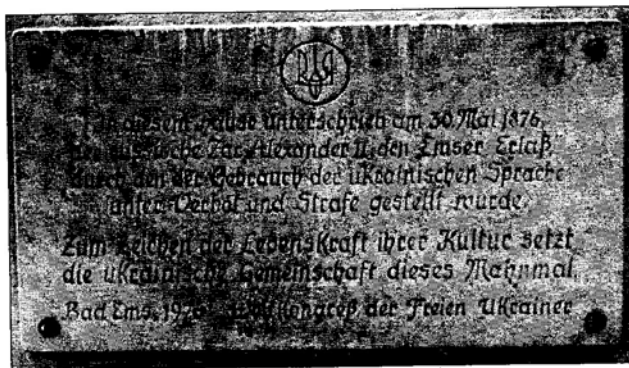 In diesem Hause unterschrieb am 30. Mai 1876
der russische Zar Alexander II. den Emser Erlaß,
durch den der Gebrauch der ukrainischen Sprache
unter Verbot und Strafe gestellt wurde.
Zum Zeichen der Lebenskraft ihrer Kultur setzt
die ukrainische Gemeinschaft dieses Mahnmal.
Bad Ems, 1976 Weltkongreß der Freien Ukrainer